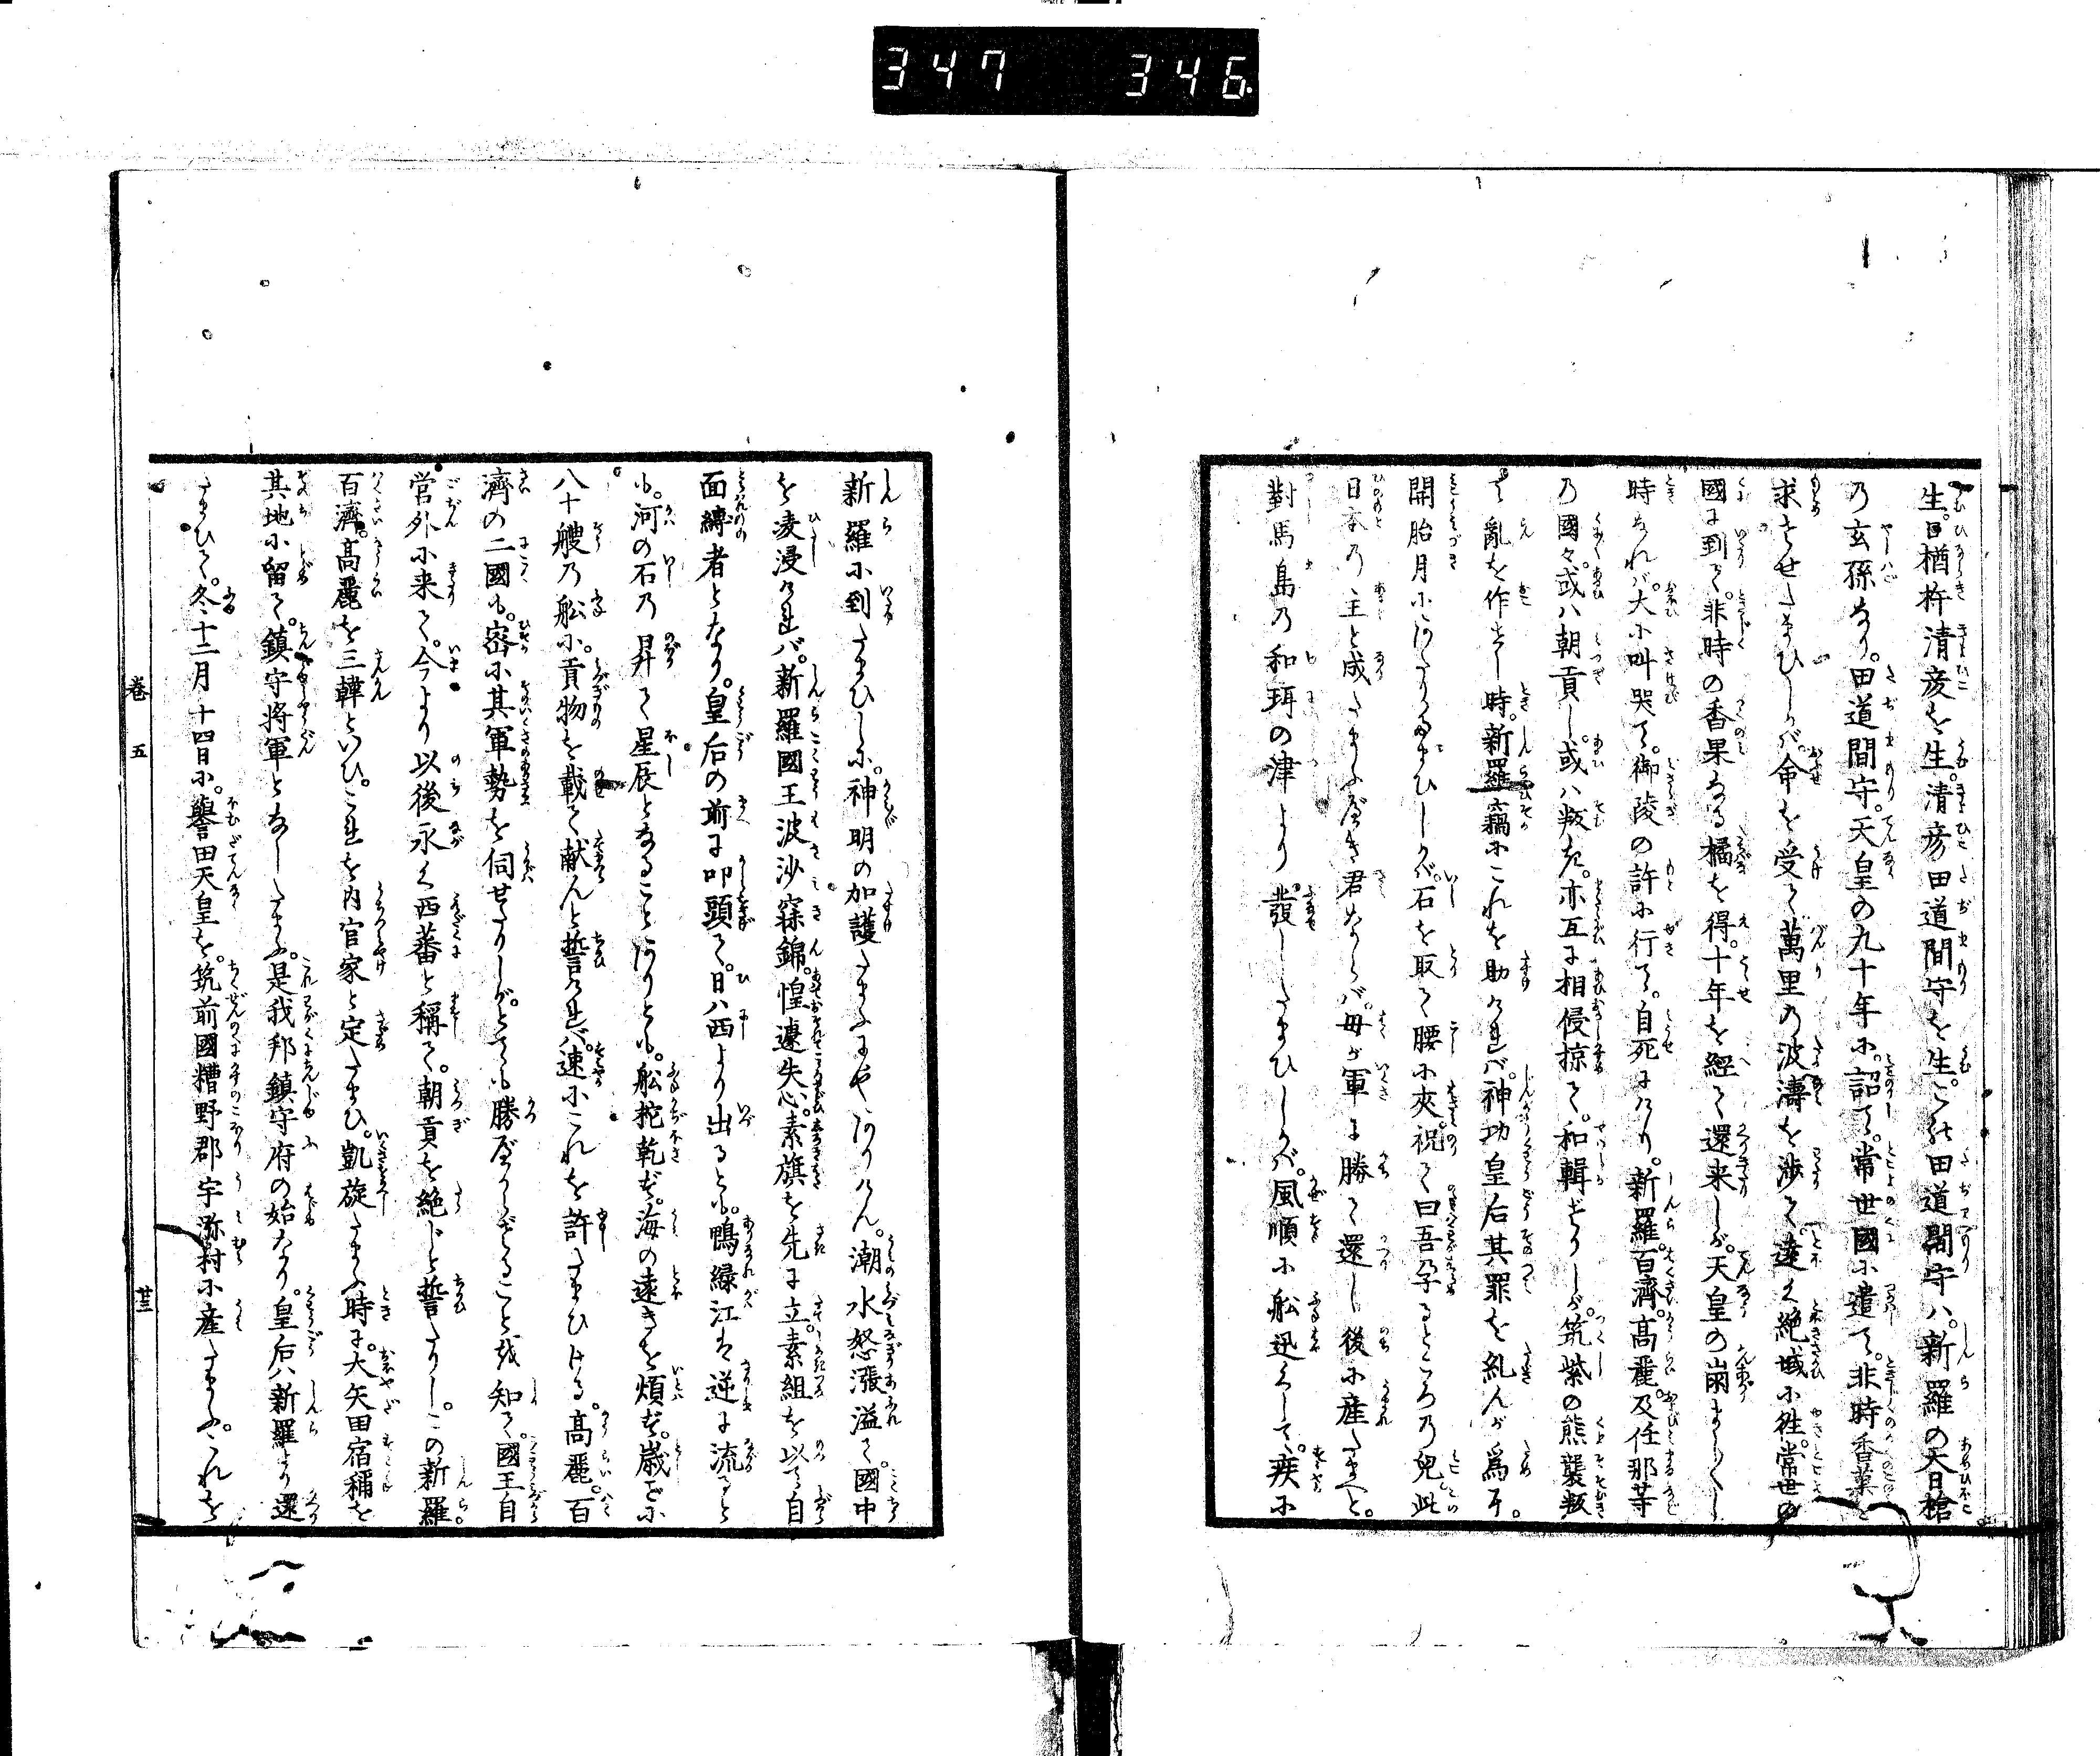 347 346
生。日楢杵清彦を生。清彦田道間守を生。この田道間守ハ。新羅の天日槍
乃玄孫なり。田道間守。天皇の九十年に。詔て。常世國に遣て。非時香菓を
求させたまひしが。命を受て萬里の波濤を渉て。遠く絶域に徃。常世の
國に到て。非時の香果なる橘を得。十年を經て還来しが。天皇の崩ましましし
時なれバ。大に叫哭て。御陵の許に行て。自死にけり。新羅。百濟。高麗。及任那等
乃國々。或ハ朝貢し。或ハ叛き。亦互に相侵掠て。和輯ざりしが。筑紫の熊襲叛
て亂を作せし時。新羅竊にこれを助けれバ。神功皇后其罪を糺んが爲に。
開胎月にあたりたまひしかバ。石を取て腰に夾。祝て曰吾孕るところの兒此
日本の主と成たまふ可き君ならバ。毋が軍に勝て還し後に産たまへと。
對馬島乃和珥の津より。發したまひしが。風順に船迅くして。疾に
新羅に到たまひしに。神明の加護たまふにやありけん。潮水怒漲溢て。國中
を凌浸けれバ。新羅國王波沙寐錦。惶遽失心。素旗を先に立。素組を以て自
面縛者となり。皇后の前に叩頭て。日ハ西より出るとも。鴨緑江は逆に流ると
も。河の石乃昇て星辰となることありとも。船柁乾ず。海の遠きを煩ず。歳ごに
八十艘乃船に。貢物を載て献んと誓けれバ。速にこれを許たまひける。高麗。百
濟の二國も。密に其軍勢を伺せたりしが。とても勝可からざることを知て。國王自
営外に来て。今より以後永く西蕃と稱て。朝貢を絶じと誓たりし。この新羅
百濟。高麗を三韓といひ。これを内官家と定たまひ。凱旋たまふ時に。大矢田宿稱を
其地に留て。鎮守将軍となしたまふ。是我邦鎮守府の始なり。皇后ハ新羅より還
たまひて。冬十二月十四日に。譽田天皇を。筑前國糟野郡宇弥村に産たまふ。これを
卷五 廿三